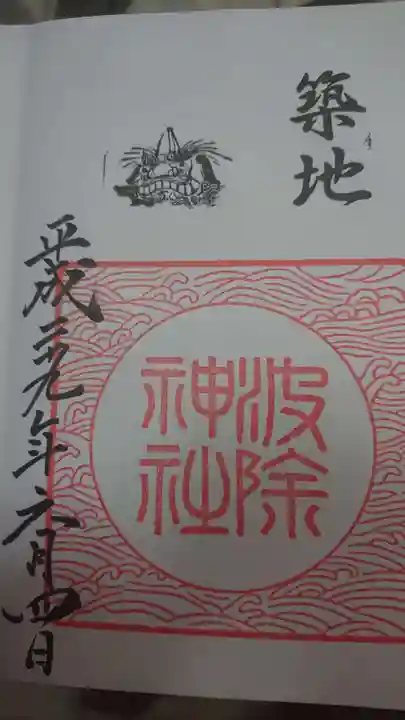 築地
波除
神社
平成二十九年六月四日